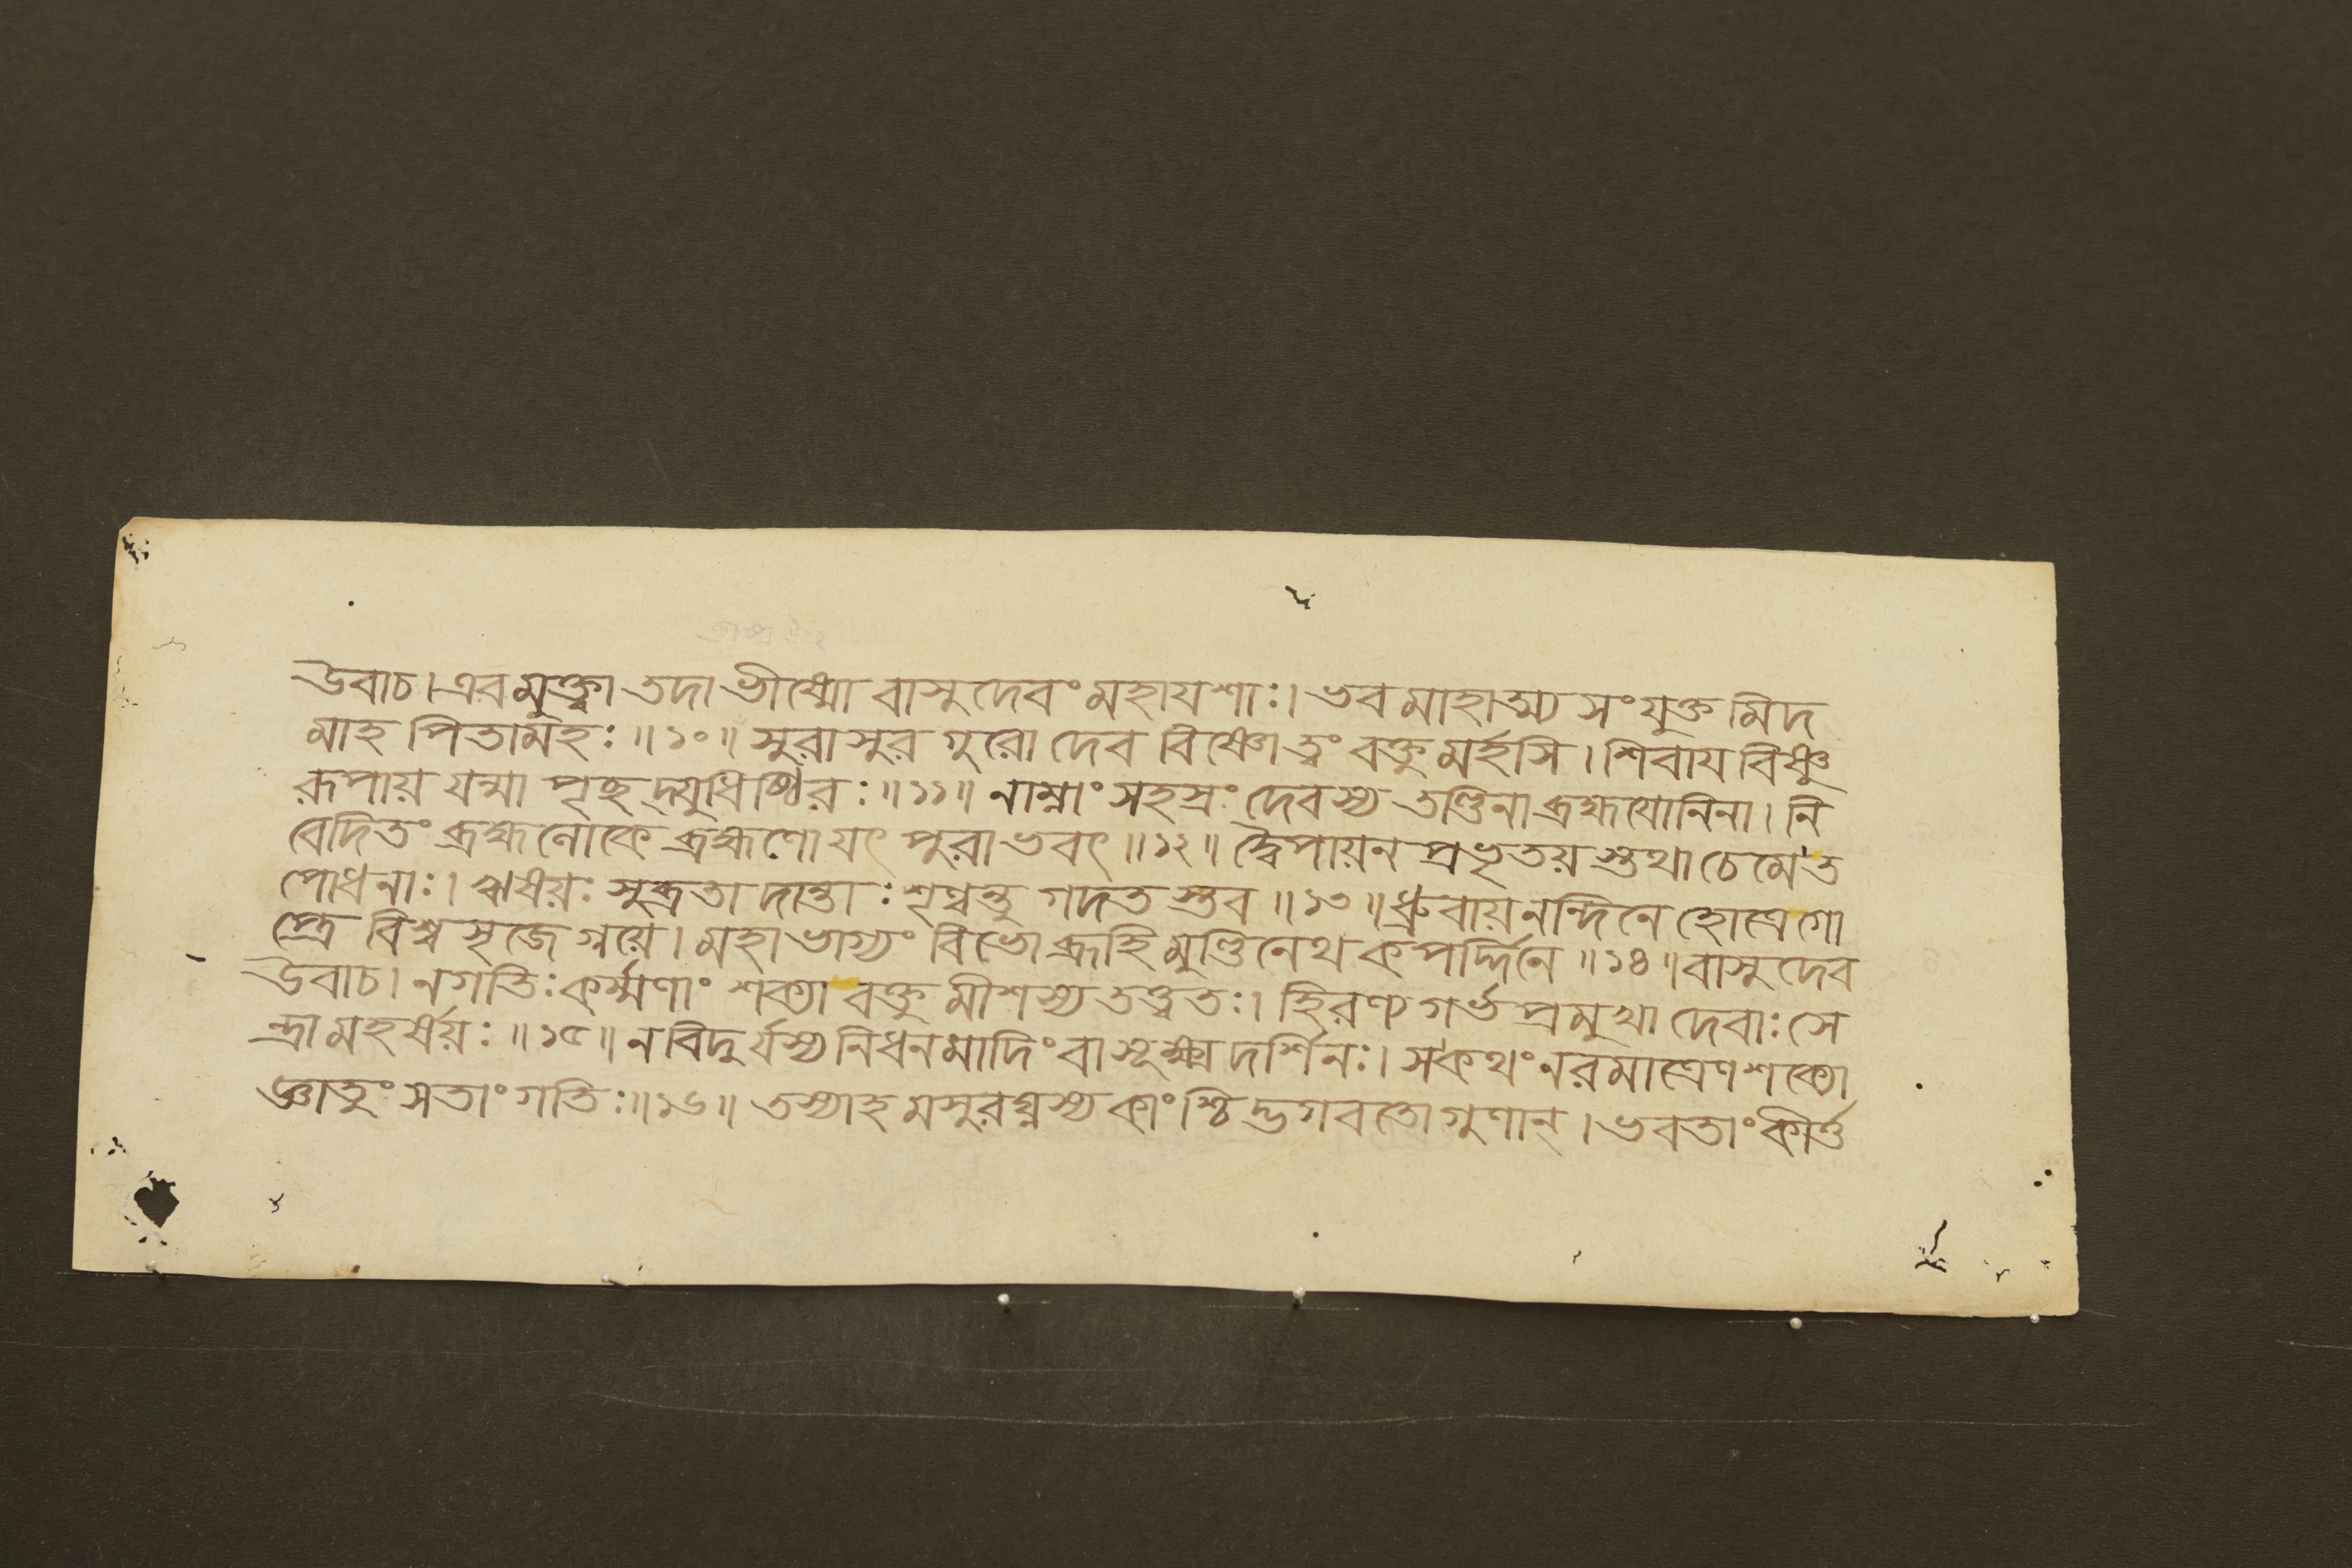 উবাচ। এবমুক্ত্বা তদা ভীষ্মো বাসুদেবং মহাযশাঃ। ভবমাহাত্ম্য সংযুক্তমিদ
মাহ পিতামহঃ॥১০॥ সুরাসুর গুরো দেব বিষ্ণো ত্বং বক্তুমর্হসি। শিবায বিষ্ণু
রূপায় যন্মা পৃছদ্যুধিষ্ঠিরঃ॥১১॥ নাম্নাং সহস্রং দেবস্য তণ্ডিনা ব্রহ্মযোনিনা। নি
বেদিতং ব্রহ্মলোকে ব্রহ্মণো যৎ পুরাভবৎ॥১২॥ দ্বৈপায়ন প্রভৃতয়স্তথা চেমে ত
পোধনাঃ। ঋষয়ঃ সুব্রতা দান্তাঃ শৃণ্বন্তু গদতস্তব॥১৩॥ ধ্রুবায় নন্দিনে হোত্রে গো
প্ত্রে বিশ্বসৃজেগ্নয়ে। মহাভাগ্যং বিভো ব্রূহি মুণ্ডিনেথ কপর্দ্দিনে॥১৪॥ বাসুদেব
উবাচ। ন গতিঃ কর্ম্মণাং শক্যা বক্তুমীশস্য তত্ত্বতঃ। হিরণ্যগর্ভ প্রমুখা দেবাঃ সে
ন্দ্রা মহর্ষয়ঃ॥১৫॥ ন বিদুর্যস্য নিধনমাদিং বা সূক্ষ্মদর্শিনঃ। স কথং নরমাত্রেণ শক্যো
জ্ঞাতুং সতাং গতিঃ॥১৬॥ তস্যাহমসুরঘ্নস্য কাংশ্চিদ্ভগবতো গুণান্। ভবতাং কীর্ত্ত